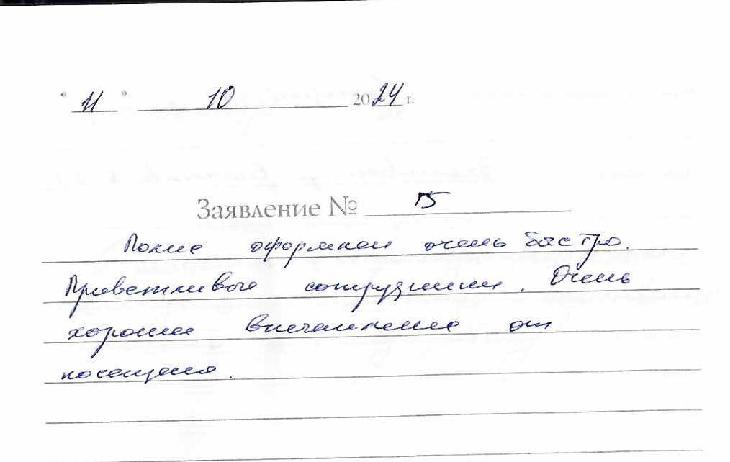 " 11 " 10 2024 г.
Заявление № 15
Полис оформили очень быстро.
Приветливые сотрудники. Очень
хорошее впечатление от
посещения.